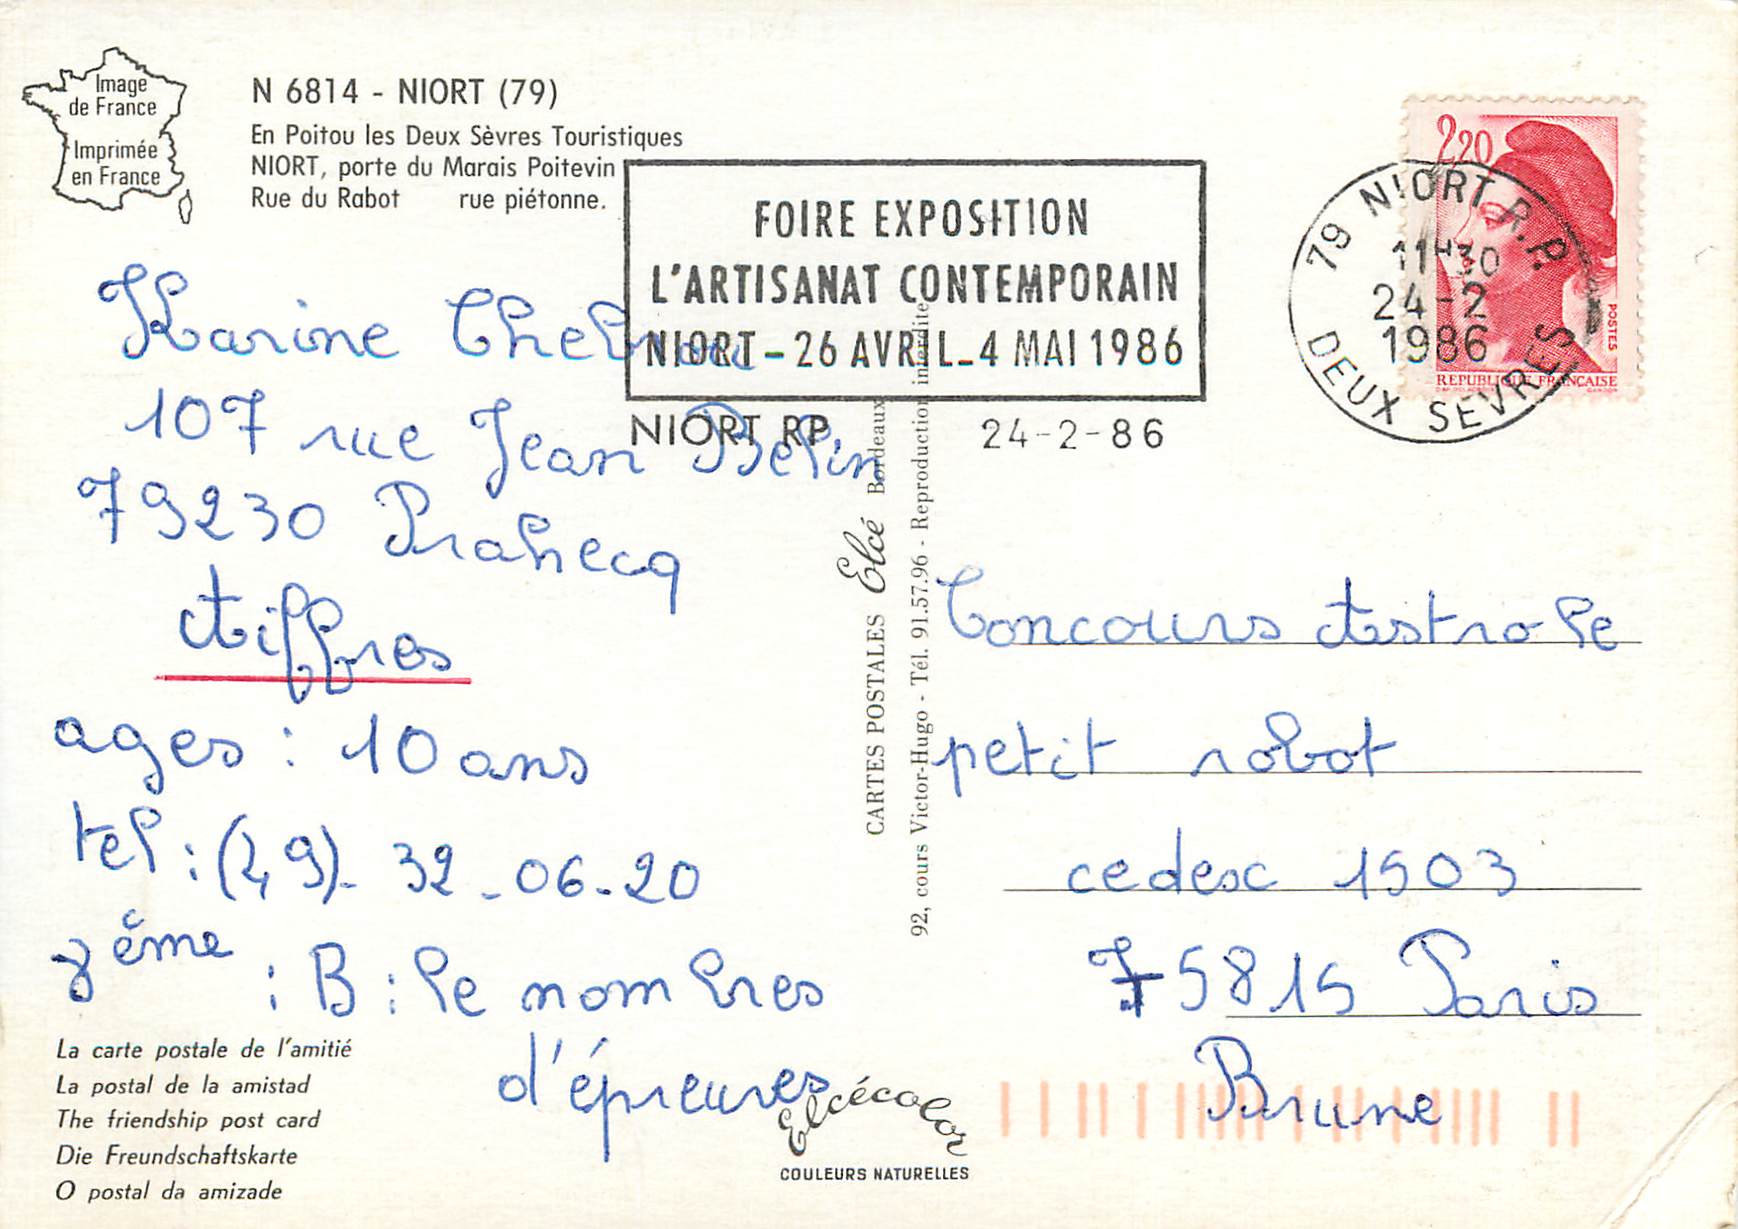 Image
de France
Imprimée
en France
N 6814 - NIORT (79)
En Poitou les Deux Sèvres Touristiques
NIORT, porte du Marais Poitevin
Rue du Rabot rue piétonne.
FOIRE EXPOSITION
L'ARTISANAT CONTEMPORAIN
NIORT - 26 AVRIL - 4 MAI 1986
NIORT RP 24-2-86
2,20
POSTES
REPUBLIQUE FRANÇAISE
79 NIORT R.P.
11H30
24-2
1986
DEUX SEVRES
Karine
107 rue Jean Belin
79230 Prahecq
Aiffres
ages : 10 ans
tel : (49). 32.06.20
: B : le nombres
d'épreuves
La carte postale de l'amitié
La postal de la amistad
The friendship post card
Die Freundschaftskarte
O postal da amizade
CARTES POSTALES Elcé Bordeaux
92, cours Victor-Hugo - Tél. 91.57.96 - Reproduction interdite
Elcécolor
COULEURS NATURELLES
Concours Astrole
petit robot
cedesc 1503
75815 Paris
Brune